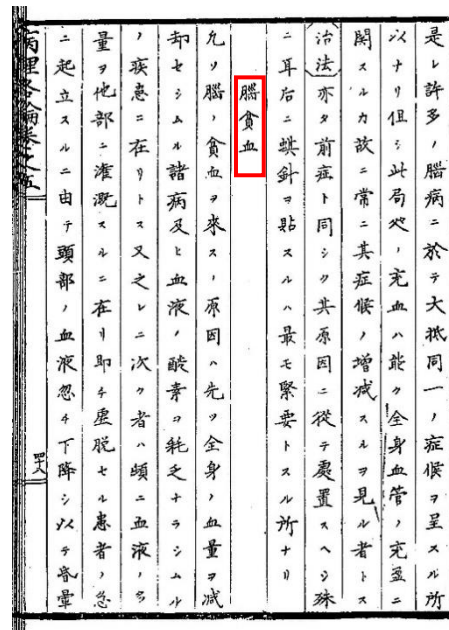 是レ許多ノ腦病ニ於テ大抵同一ノ症候ヲ呈スル所
以ナリ但シ此局処ノ充血ハ能ク全身血管ノ充盈ニ
関スルカ故ニ常ニ其症候ノ增減スルヲ見ル者トス
治法亦タ前症ト同シク其原因ニ從テ處置スヘシ殊
ニ耳后ニ蜞針ヲ貼スルハ最モ緊要トスル所ナリ
腦貧血
凢ソ腦ノ貧血ヲ來スノ原因ハ先ツ全身ノ血量ヲ減
却セシムル諸病及ヒ血液ノ酸素ヲ耗乏ナラシムル
ノ疾患ニ在リトス又之レニ次ク者ハ頓ニ血液ノ多
量ヲ他部ニ灌漑スルニ在リ即チ虛脱セル患者ノ急
ニ起立スルニ由テ頭部ノ血液忽チ下降シ以テ昏暈
病理各論卷之五
四十八